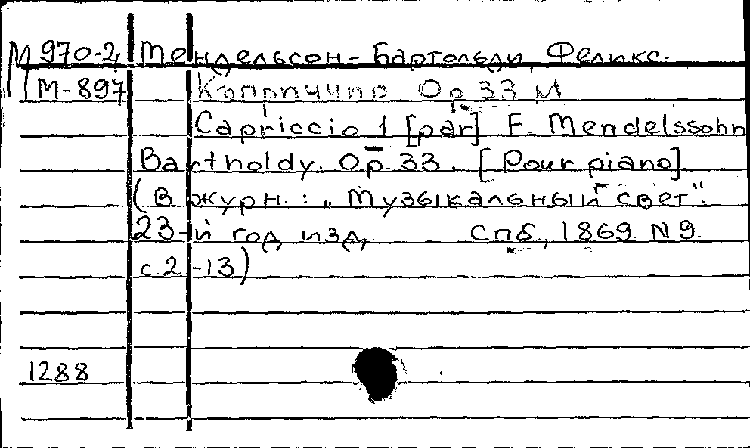 М 970-2 Мендельсон-Бартольди, Феликс.
М-897 Каприччио Op 33 М
Capriccio 1 [par] F. Mendelssohn
Bartholdy. Op. 33. [Pour piano]
(В журн.: „Музыкальный свет".
23-й год изд, Спб, 1869 N9
с.2-13)
1288